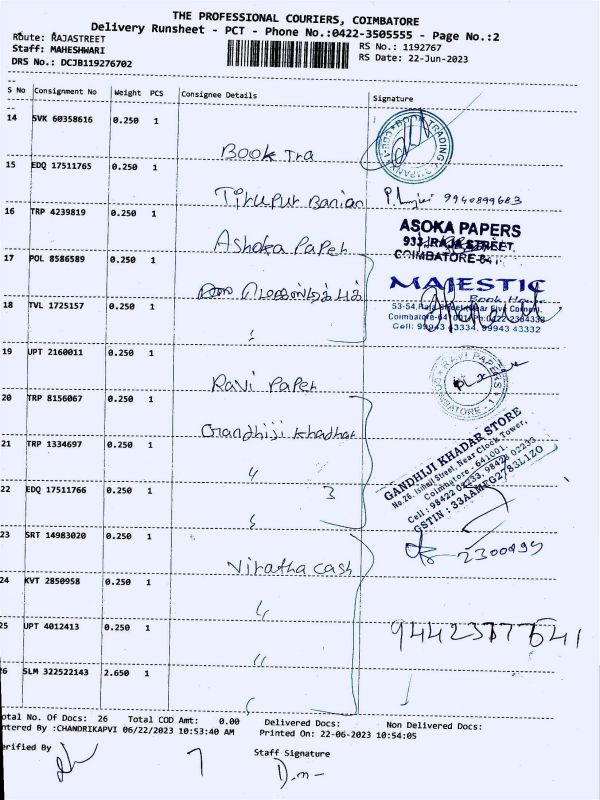 THE PROFESSIONAL COURIERS, COIMBATORE
Delivery Runsheet - PCT - Phone No.:0422-3505555 - Page No.:2
Route: RAJASTREET
Staff: MAHESHWARI
DRS No.: DCJB119276702
RS No.: 1192767
RS Date: 22-Jun-2023
S No Consignment No Weight PCS Consignee Details Signature
14 SVK 60358616 0.250 1
Book Tra
15 EDQ 17511765 0.250 1
Tirupur Banian 9940899683
16 TRP 4239819 0.250 1
Ashoka Paper
ASOKA PAPERS
933, RAJA STREET,
COIMBATORE-641
17 POL 8586589 0.250 1
MAJESTIC
Book House
53-54, Raja Street, Near Five Corner,
Coimbatore-641 001 Ph:0422-2384333
Cell: 99943 43334, 99943 43332
18 TVL 1725157 0.250 1
19 UPT 2160011 0.250 1
Ravi Paper
RAVI PAPERS
COIMBATORE - 1
20 TRP 8156067 0.250 1
Gandhiji Khadhar
GANDHIJI KHADAR STORE
No.26, Ismail Street, Near Clock Tower,
Coimbatore - 641001.
Cell : 98422 02233, 98428 02233
GSTIN : 33AAMFG2783L1ZO
21 TRP 1334697 0.250 1
22 EDQ 17511766 0.250 1
3
23 SRT 14983020 0.250 1
Viratha cash
24 KVT 2850958 0.250 1
25 UPT 4012413 0.250 1
26 SLM 322522143 2.650 1
otal No. Of Docs: 26 Total COD Amt: 0.00 Delivered Docs: Non Delivered Docs:
ntered By :CHANDRIKAPVI 06/22/2023 10:53:40 AM Printed On: 22-06-2023 10:54:05
erified By
7
Staff Signature